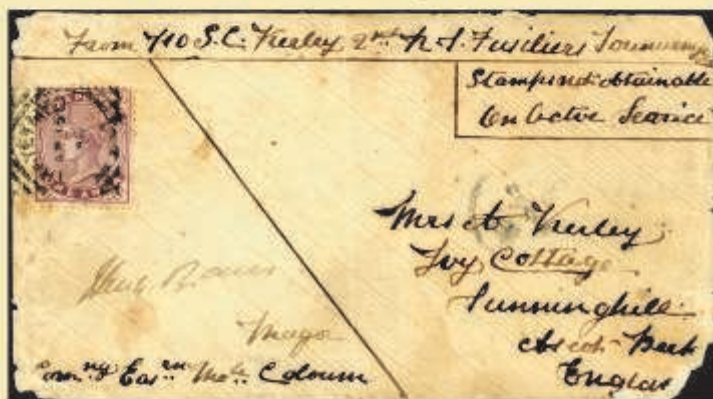 From 710 S.C. Verley 2nd R.I. Fusiliers
Stamps not obtainable
On Active Service
Mrs A Verley
Ivy Cottage
Sunninghill
Ascot Berk
England
Major
Comng Easrn Mole Coloum